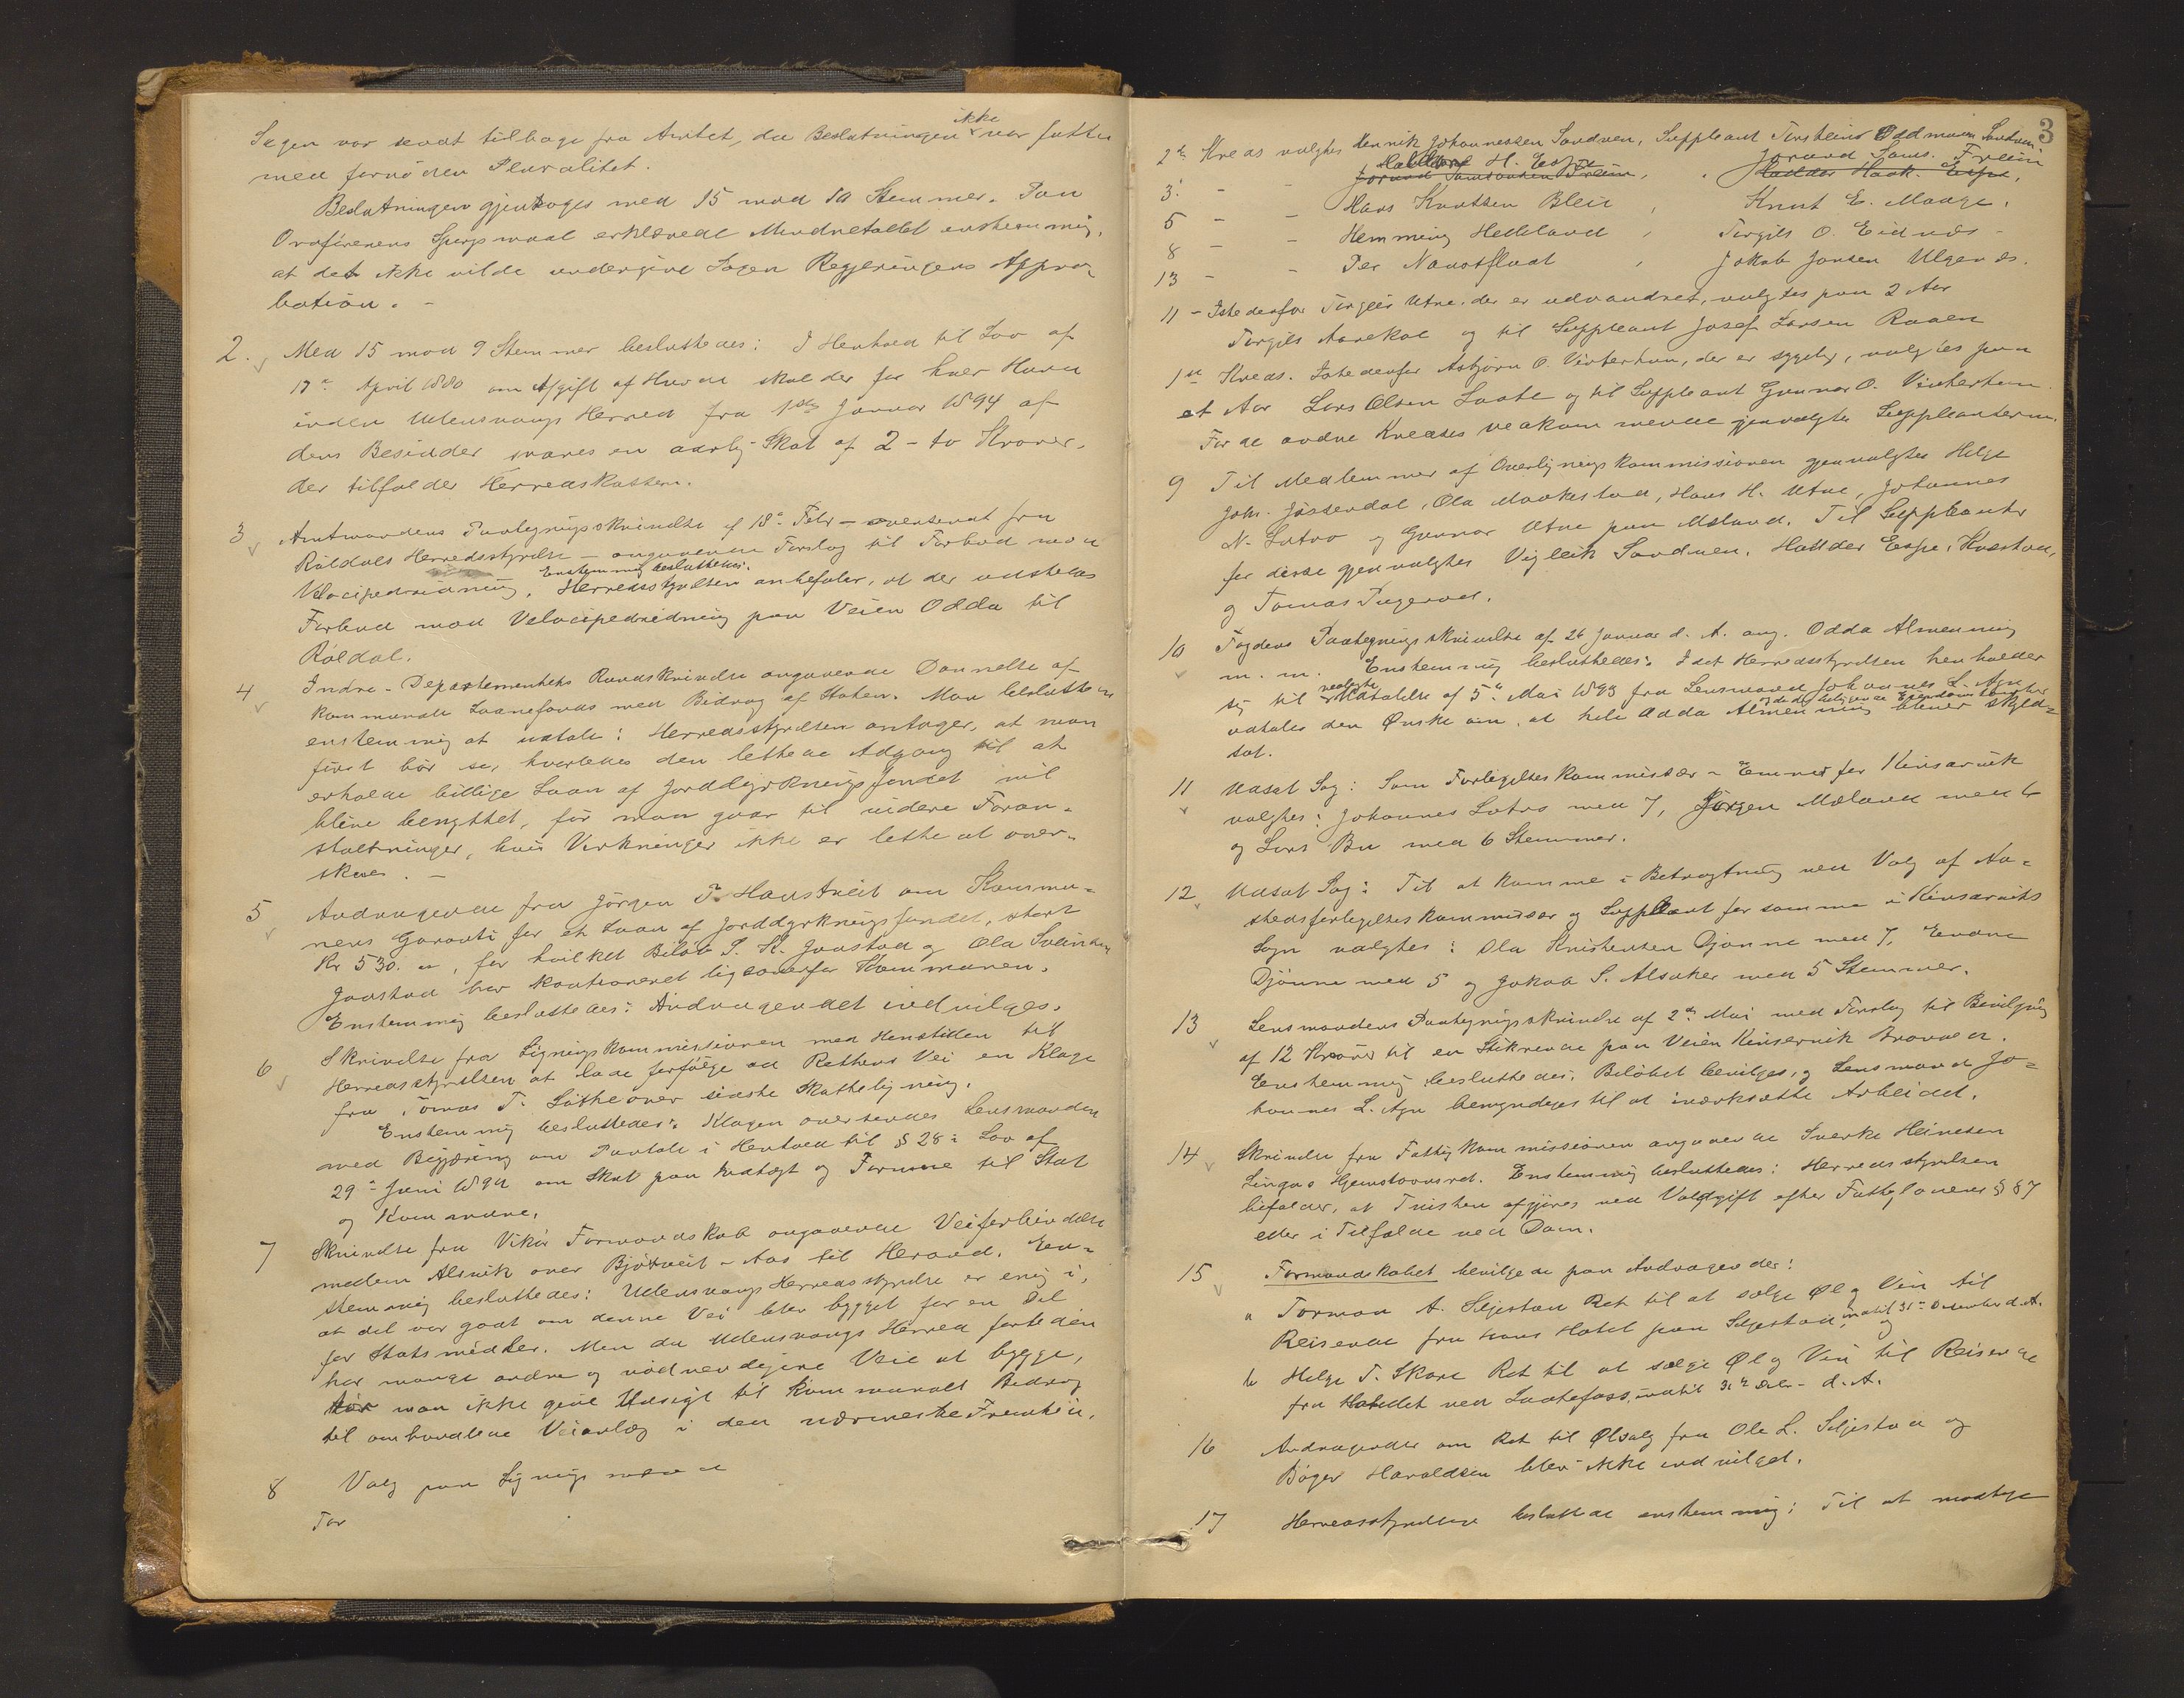 Sagen var sendt tilbage fra Amtet, da Beslutningen ikke var fattet
med fornöden Pluralitet.
Beslutningen gjentoges med 15 mod 10 Stemmer. Paa
Ordförerens Spörgsmaal erklærede Mindretallet enstemmig,
at det ikke vilde undergive Sagen Regjeringens Appro-
bation. -
2. Med 15 mod 9 Stemmer besluttedes: I Henhold til Lov af
17de April 1880 om Afgift af Hunde skal der for hver Hund
inden Udensvangs Herred fra 1ste Januar 1894 af
dens Besidder svares en aarlig Skat af 2 - to Kroner,
der tilfalder Herredskassen.
3 Amtmandens Paategningsskrivelse af 18de Febr - oversendt fra
Röldals Herredsstyrelse - angaaende Forslag til Forbud mod
Velocipedridning. Enstemmig besluttedes: Herredsstyrelsen anbefaler, at der udstedes
Forbud mod Velocipedridning paa Veien Odda til
Röldal.
4 Indre-Departementets Rundskrivelse angaaende Dannelse af
kommunale Laanefonds med Bidrag af Staten. Man besluttede
enstemmig at udtale: Herredsstyrelsen antager, at man
först bör se, hvorledes den lettede Adgang til at
erholde billige Laan af Jorddyrkningsfondet vil
blive benyttet, før man gaar til videre Foran-
staltninger, hvis Virkninger ikke er lette at over-
skue. -
5 Andragende fra Jörgen T. Haustveit om Kommu-
nens Garanti for et Laan af Jorddyrkningsfondet, stort
Kr 530. -, for hvilket Belöb S. K. Jaastad og Ola Sveinsen
Jaastad har kautioneret ligeoverfor Kommunen.
Enstemmig besluttedes: Andragendet indvilges.
6 Skrivelse fra Ligningskommissionen med Henstillen til
Herredsstyrelsen at lade forfölge ad Rettens Vei en Klage
fra Tomas T. Lothe over sidste Skatteligning.
Enstemmig besluttedes: Klagen oversendes Lensmanden
med Begjæring om Paatale i Henhold til § 28 i Lov af
29de Juni 1894 om Skat paa Indtægt og Formue til Stat
og Kommune.
7 Skrivelse fra Vikör Formandskab angaaende Veiforbindelse
mellem Alsvik over Bjötveit - Aas til Herand. En-
stemmig besluttedes: Udensvangs Herredsstyrelse er enig i,
at det var godt om denne Vei blev bygget for en Del
for Statsmidler. Men da Udensvangs Herred fortiden
har mange andre og nödvendigere Veie at bygge,
tör man ikke give Udsigt til kommunalt Bidrag
til omhandlede Veianlæg i den nærmeste Fremtid.
8 Valg paa Ligningsmænd
For
3
2de Kreds valgtes Henrik Johannessen Sandven, Suppleant Torstein Oddmun Sandven
3. - - Jorund Samsonsen Freim, Halldor H. Espe , Halldor Haak. Espe, Jorund Sams. Freim
5 - - Hans Knutsen Bleie , Knut E. Maage.
8 - - Hemming Helleland , Torgils O. Eidnes -
13 - - Per Naustflaat , Jakob Jonsen Ulgenes.
11 - Istedenfor Torgeir Utne, der er udvandret, valgtes paa 2 Aar
Torgils Aarekol og til Suppleant Josef Larsen Raaen
1ste Kreds. Istedenfor Asbjörn O. Vinterhun, der er sygelig, valgtes paa
et Aar Lars Olsen Laate og til Suppleant Gunnar O. Vinterhun.
For de andre Kredses vedkommende gjenvalgtes Suppleanterne.
9 Til Medlemmer af Overligningskommissionen gjenvalgtes Helge
Johs. Jösendal, Ola Maakestad, Hans H. Utne, Johannes
N. Lutro og Gunnar Utne paa Mæland. Til Suppleanter
for disse gjenvalgtes Vigleik Sandven, Halldor Espe, Kvestad,
og Tomas Tugerad.
10 Fogdens Paategningsskrivelse af 26 Januar d. A. ang. Odda Almenning
m. m. Enstemmig besluttedes: Idet Herredsstyrelsen henholder
sig til vedlagte Udtalelse af 5te Mai 1893 fra Lensmand Johannes L. Aga
udtales den Ønske om, at hele Odda Almenning og de tilliggende Eiendomme bliver skyld-
sat.
11 Udsat Sag: Som Forligelseskommissær-Emner for Kinsarvik
valgtes: Johannes Lutro med 7, Jörgen Mæland med 6
og Lars Bu med 6 Stemmer.
12 Udsat Sag: Til at komme i Betragtning ved Valg af An-
stedsforligelseskommissær og Suppleant for samme i Kinsarviks
Sogn valgtes: Ola Kristensen Djönne med 7, Endre
Djönne med 5 og Jakob S. Alsaker med 5 Stemmer.
13 Lensmandens Paategningsskrivelse af 2den Mai med Forslag til Bevilgning
af 12 Kroner til en Stikrende paa Veien Kinservik Bravoll.
Enstemmig besluttedes: Belöbet bevilges, og Lensmand Jo-
hannes L. Aga bemyndiges til at iværksætte Arbeidet.
14 Skrivelse fra Fattigkommissionen angaaende Sverke Heinesen
Lingas Hjemstavnsret. Enstemmig besluttedes: Herredsstyrelsen
bifalder, at Tvisten afgjøres ved Voldgift efter Fattiglovens § 87
eller i Tilfælde ved Dom.
15 Formandskabet bevilgede paa Andragender:
a Torman A. Seljestad Ret til at sælge Øl og Vin til
Reisende fra hans Hotel paa Seljestad, indtil 31te December d. A.
og
b Helge T. Skare Ret til at sælge Øl og Vin til Reisende
fra Hotellet ved Laatefoss, indtil 31te Decbr. d. A.
16 Andragender om Ret til Ølsalg fra Ole L. Seljestad og
Böger Haraldsen blev ikke indvilget.
17 Herredsstyrelsen besluttede enstemmig: Til at modtage